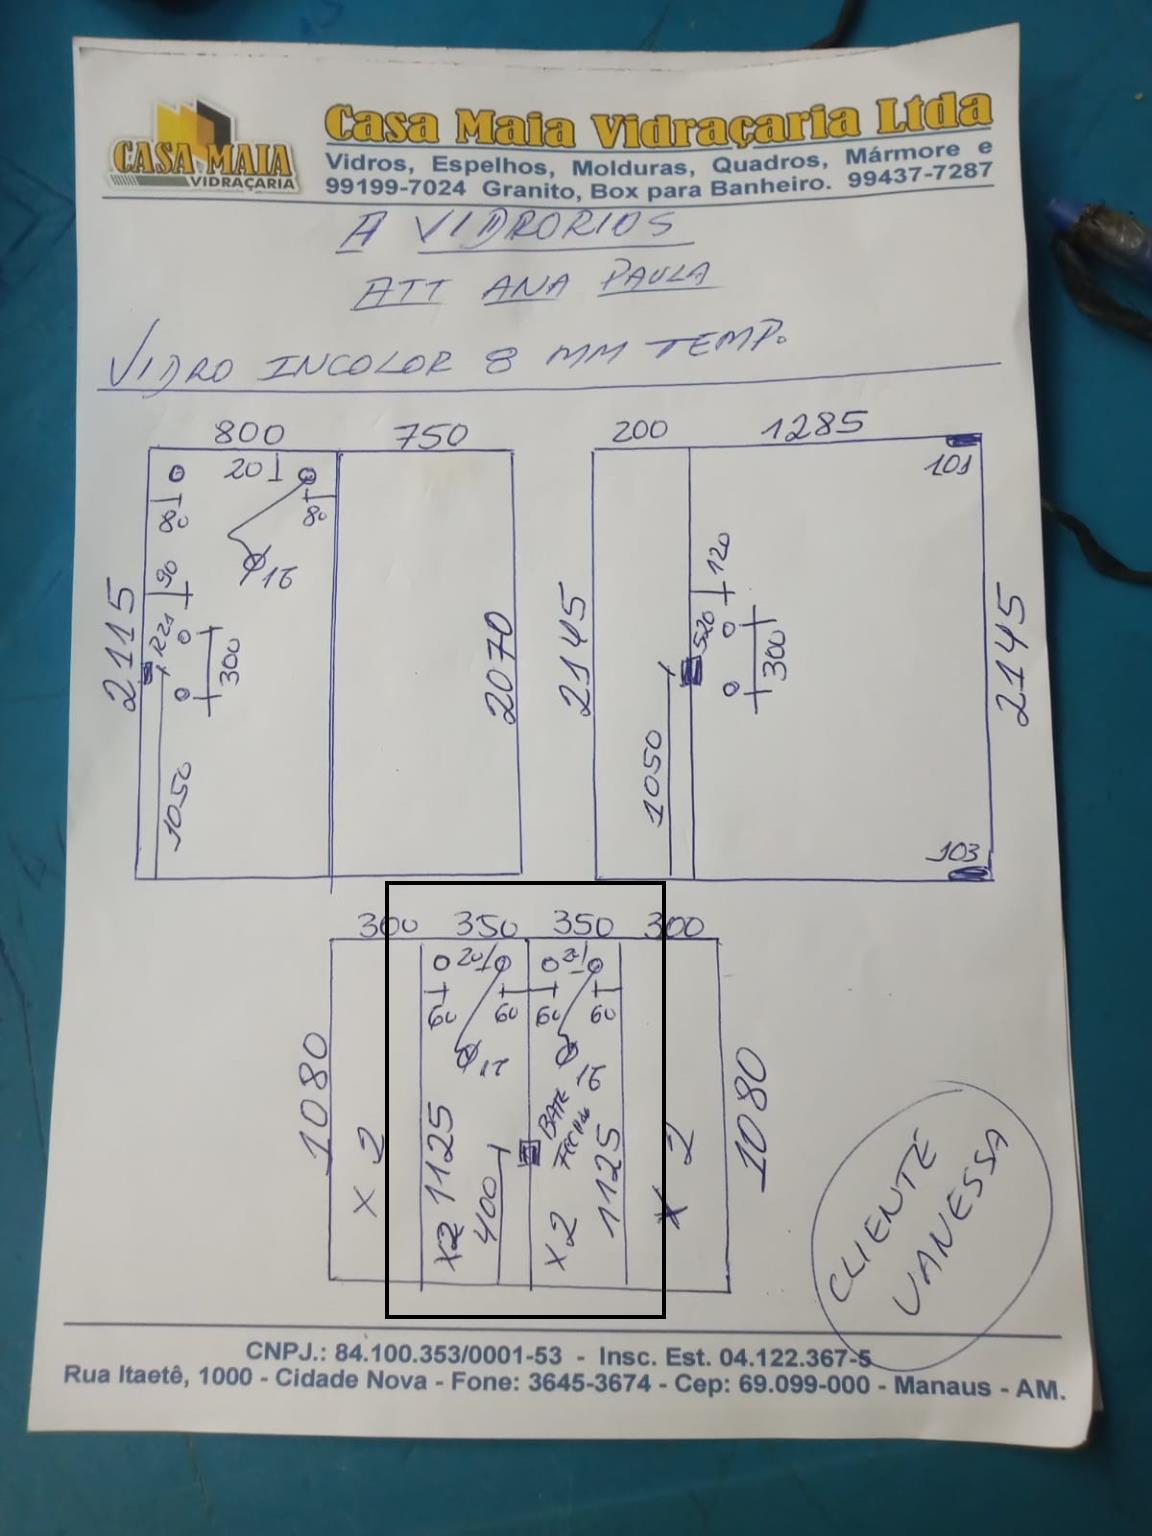 CASA MAIA
VIDRAÇARIA
Casa Maia Vidraçaria Ltda
Vidros, Espelhos, Molduras, Quadros, Mármore e
99199-7024 Granito, Box para Banheiro. 99437-7287
A VIDRORIOS
ATT ANA PAULA
VIDRO INCOLOR 8 MM TEMP.
800 750 200 1285
20 101
80 80
16
90 120
2115 300 2070 2145 520 300 2145
1050 1050
103
300 350 350 300
20
60 60 60 60
16 16
1080 BATE 1080
FECHA
X 2 X2 1125 400 X 2 1125 X 2
CLIENTE
VANESSA
CNPJ.: 84.100.353/0001-53 - Insc. Est. 04.122.367-5
Rua Itaetê, 1000 - Cidade Nova - Fone: 3645-3674 - Cep: 69.099-000 - Manaus - AM.